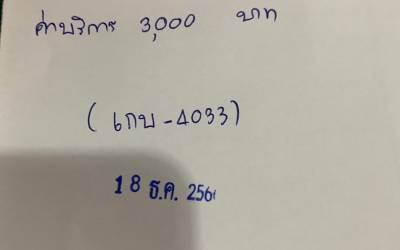 ค่าบริการ 3,000 บาท
(เกบ-4033)
18 ธ.ค.